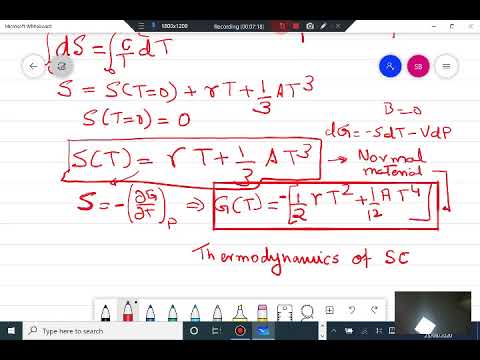 Microsoft Whiteboard
1800x1209
Recording (00:07:18)
∫dS = ∫₀ C/T dT
S = S(T=0) + γT + 1/3 AT³
S(T=0) = 0
B=0
dG = -SdT - VdP
S(T) = γT + 1/3 AT³ → Normal material
S = -(∂G/∂T)_P ⇒ G(T) = -[1/2 γT² + 1/12 AT⁴]
Thermodynamics of SC
SB
Type here to search